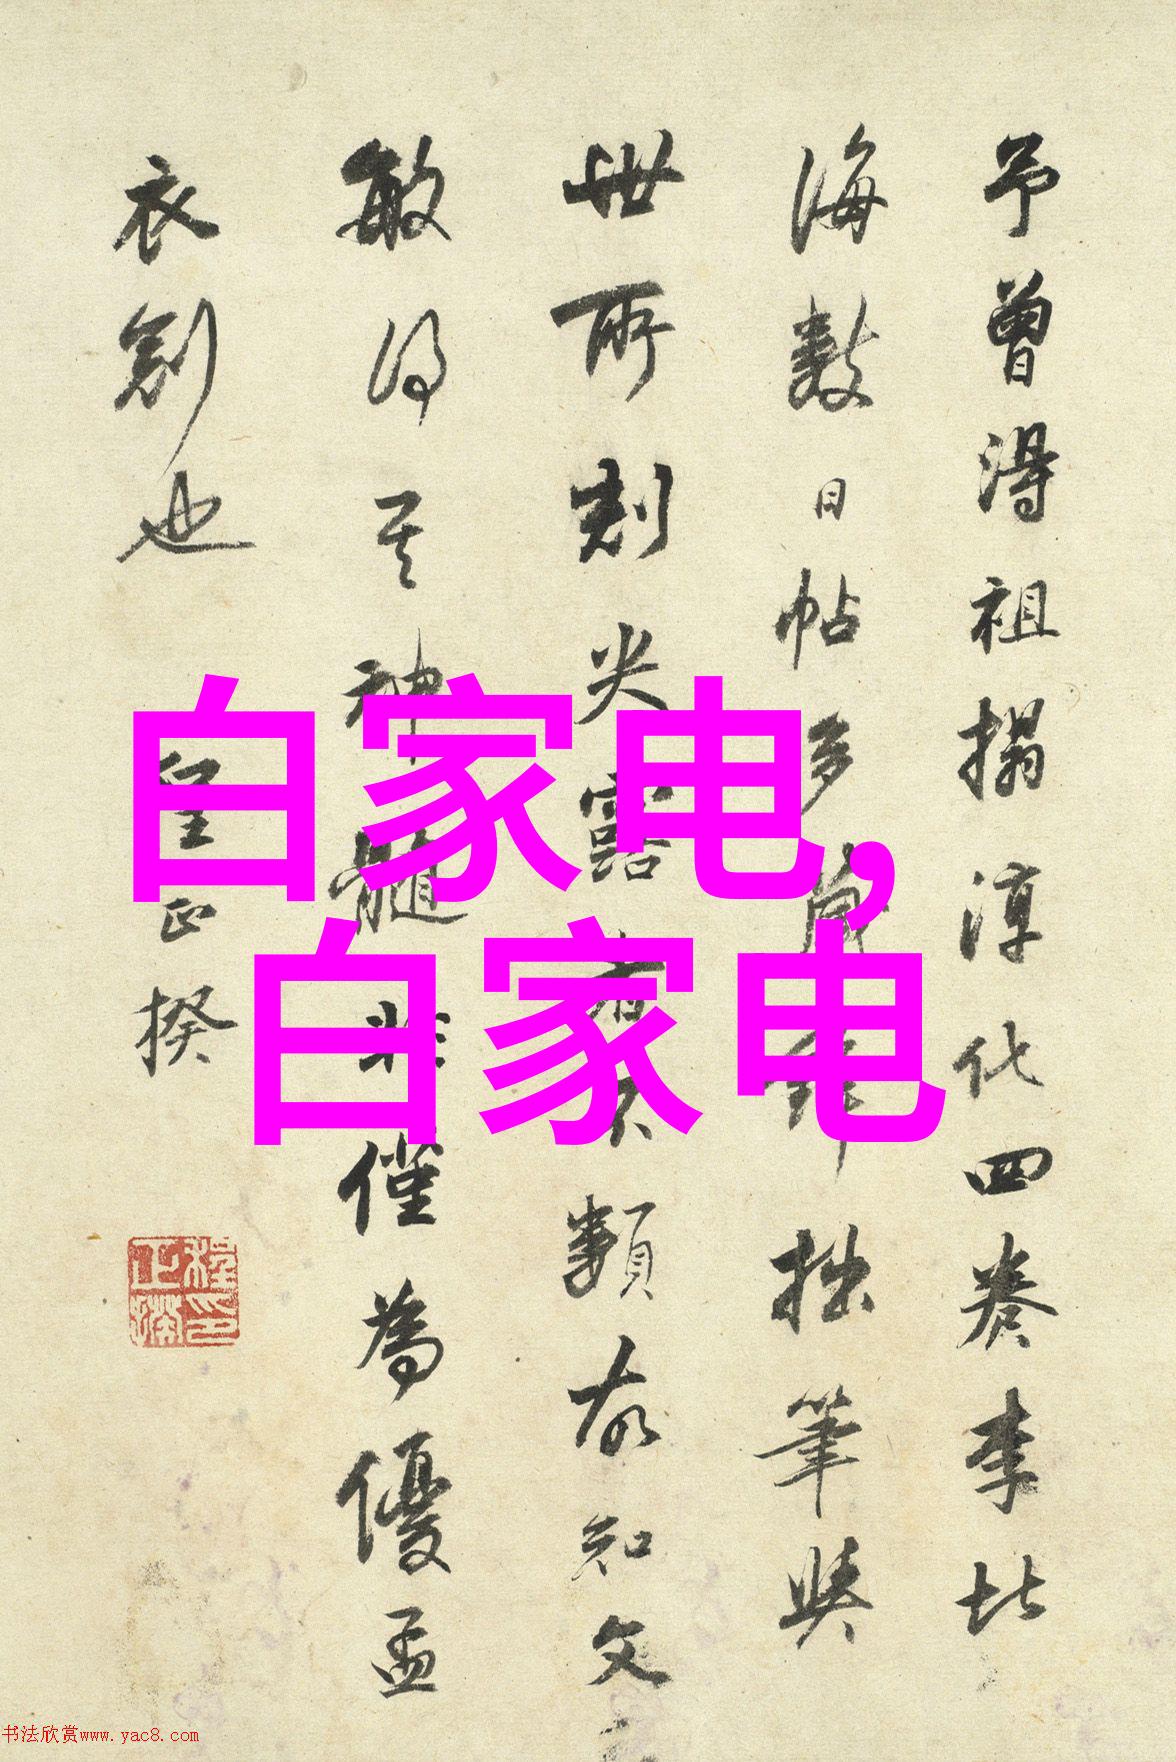 予曾得祖搨淳化四卷李北
海數日帖多
拙筆與
世所刻尖露者不類故知文
敏得其神髓非僅為優孟
衣劍也
程正揆
白家电,
白家电
书法欣赏www.yac8.com